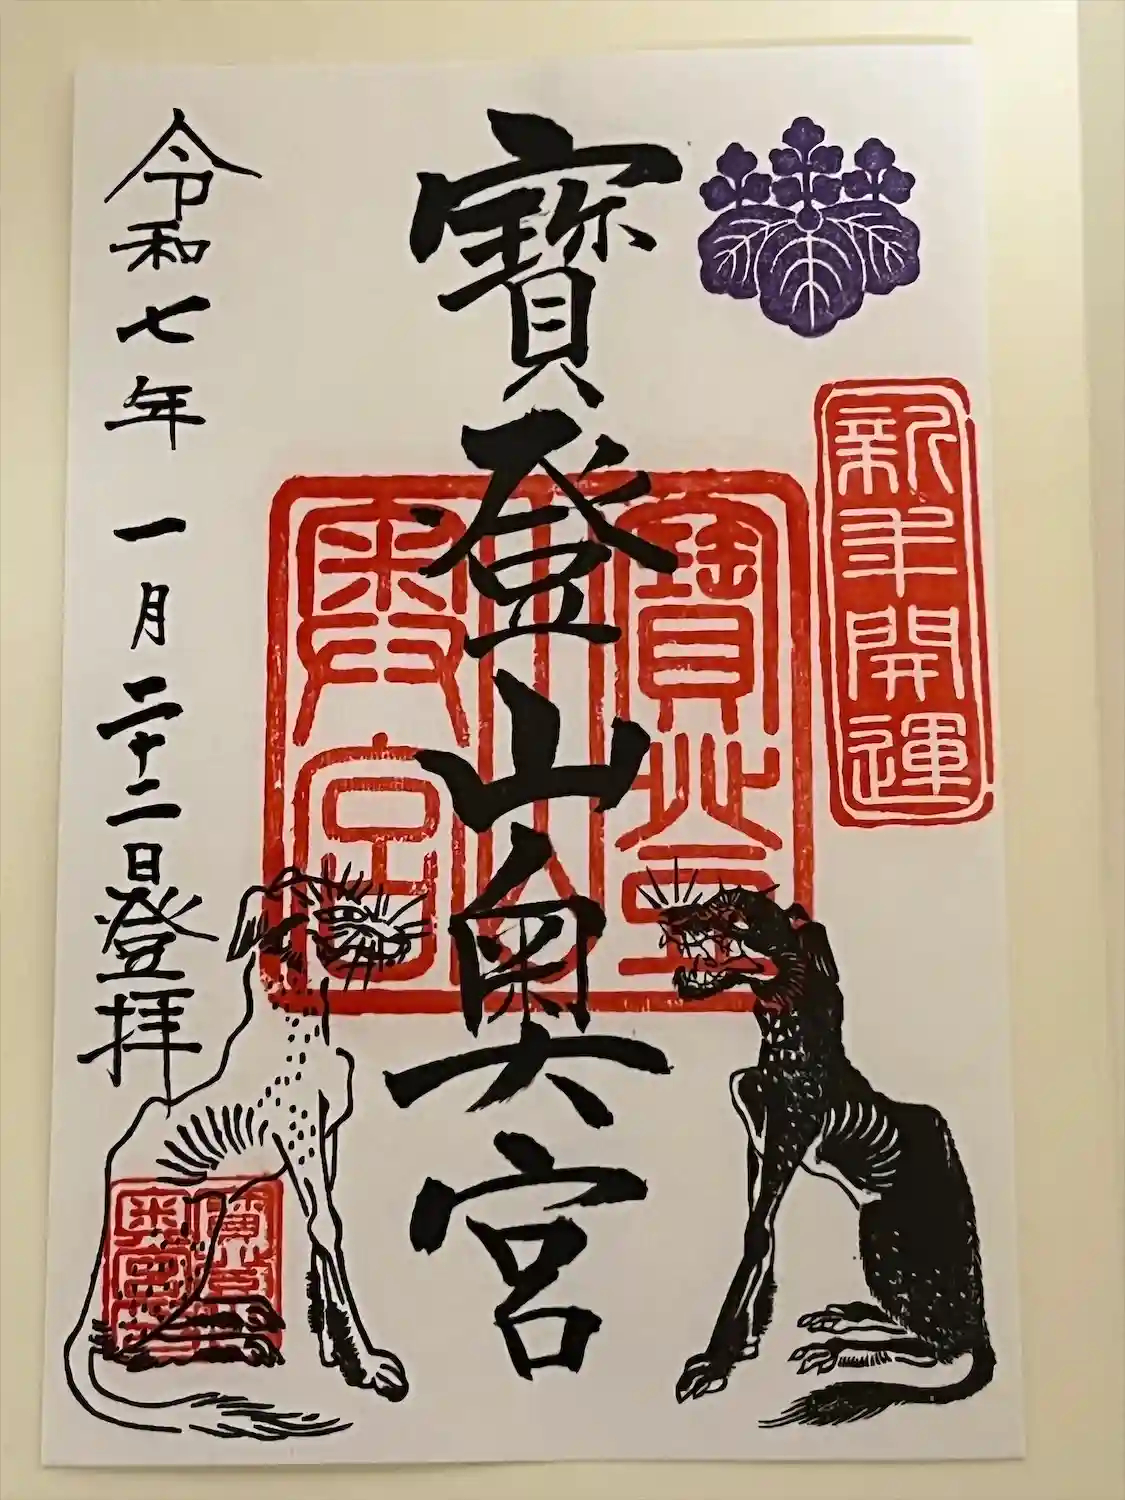 新年開運
寶登山奥宮
寶登山奥宮
令和七年一月二十二日登拝